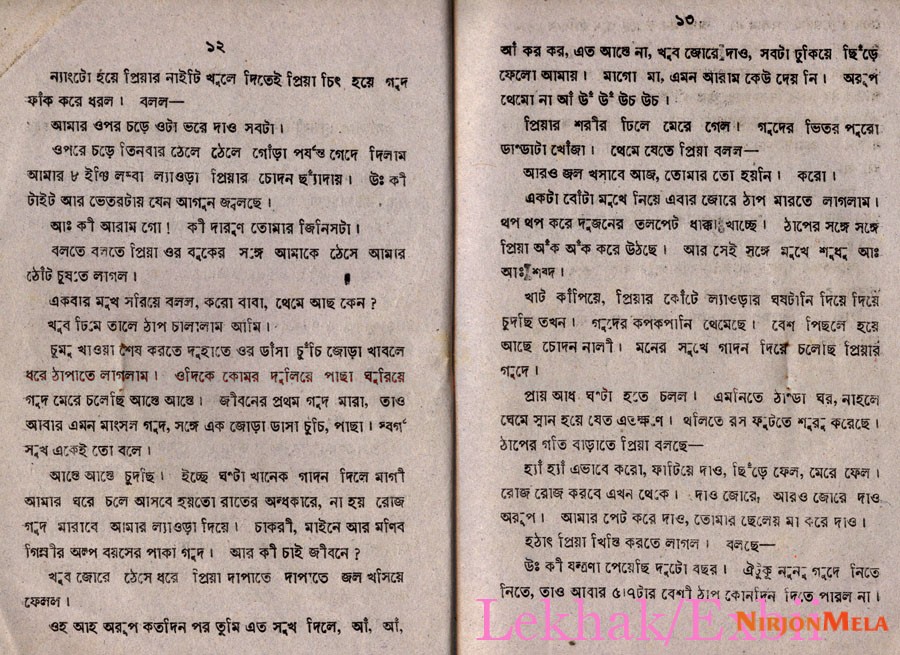 ১২
ন্যাংটো হয়ে প্রিয়ার নাইটি খুলে দিতেই প্রিয়া চিৎ হয়ে গুদ
ফাঁক করে ধরল। বলল—
আমার ওপর চড়ে ওটা ভরে দাও সবটা।
ওপরে চড়ে তিনবার ঠেলে ঠেলে গোঁড়া পর্যন্ত গেদে দিলাম
আমার ৮ ইঞ্চি লম্বা ল্যাওড়া প্রিয়ার চোদন ছ্যাঁদায়। উঃ কী
টাইট আর ভেতরটায় যেন আগুন জ্বলছে।
আঃ কী আরাম গো! কী দারুণ তোমার জিনিসটা।
বলতে বলতে প্রিয়া ওর বুকের সঙ্গে আমাকে ঠেসে আমার
ঠোঁট চুষতে লাগল।
একবার মুখ সরিয়ে বলল, করো বাবা, থেমে আছ কেন?
খুব ঢিমে তালে ঠাপ চালালাম আমি।
চুমু খাওয়া শেষ করতে দুহাতে ওর ডাঁসা চুঁচি জোড়া খাবলে
ধরে ঠাপাতে লাগলাম। ওদিকে কোমর দুলিয়ে পাছা ঘুরিয়ে
গুদ মেরে চলেছি আস্তে আস্তে। জীবনের প্রথম গুদ মারা, তাও
আবার এমন মাংসল গুদ, সঙ্গে এক জোড়া ডাসা চুচি, পাছা। স্বর্গ
সুখ একেই তো বলে।
আস্তে আস্তে চুদছি। ইচ্ছে ঘণ্টা খানেক গাদন দিলে মাগী
আমার ঘরে চলে আসবে হয়তো রাতের অন্ধকারে, না হয় রোজ
গুদ মারাবে আমার ল্যাওড়া দিয়ে। চাকরী, মাইনে আর মনিব
গিন্নীর অল্প বয়সের পাকা গুদ। আর কী চাই জীবনে?
খুব জোরে ঠেসে ধরে প্রিয়া দাপাতে দাপাতে জল খসিয়ে
ফেলল।
ওহ আহ অরূপ কতদিন পর তুমি এত সুখ দিলে, আঁ, আঁ,
১৩
আঁ কর কর, এত আস্তে না, খুব জোরে দাও, সবটা ঢুকিয়ে ছিঁড়ে
ফেলো আমায়। মাগো মা, এমন আরাম কেউ দেয় নি। অরূপ
থেমো না আঁ উঁ উঁ উচ উচ।
প্রিয়ার শরীর ঢিলে মেরে গেল। গুদের ভিতর পুরো
ডাণ্ডাটা খোঁজা। থেমে যেতে প্রিয়া বলল—
আরও জল খসাবে আজ, তোমার তো হয়নি। করো।
একটা বোঁটা মুখে নিয়ে এবার জোরে ঠাপ মারতে লাগলাম।
থপ থপ করে দুজনের তলপেট ধাক্কা খাচ্ছে। ঠাপের সঙ্গে সঙ্গে
প্রিয়া অঁক অঁক করে উঠছে। আর সেই সঙ্গে মুখে শুধু আঃ
আঃ শব্দ।
খাট কাঁপিয়ে, প্রিয়ার কোঁটে ল্যাওড়ার ঘষটানি দিয়ে দিয়ে
চুদছি তখন। গুদের কপকপানি থেমেছে। বেশ পিছলে হয়ে
আছে চোদন নালী। মনের সুখে গাদন দিয়ে চলেছি প্রিয়ার
গুদে।
প্রায় আধ ঘণ্টা হতে চলল। এমনিতে ঠাণ্ডা ঘর, নাহলে
ঘেমে স্নান হয়ে যেত এতক্ষণ। থলিতে রস ফুটতে শুরু করেছে।
ঠাপের গতি বাড়াতে প্রিয়া বলছে—
হ্যাঁ হ্যাঁ এভাবে করো, ফাটিয়ে দাও, ছিঁড়ে ফেল, মেরে ফেল।
রোজ রোজ করবে এখন থেকে। দাও জোরে, আরও জোরে দাও
অরূপ। আমার পেট করে দাও, তোমার ছেলের মা করে দাও।
হঠাৎ প্রিয়া খিস্তি করতে লাগল। বলছে—
উঃ কী যন্ত্রণা পেয়েছি দুটো বছর। ঐটুকু নুনু গুদে নিতে
নিতে, তাও আবার ৫।৭টার বেশী ঠাপ কোনদিন দিতে পারল না।
Lekhak/Exbii
NIRJONMELA